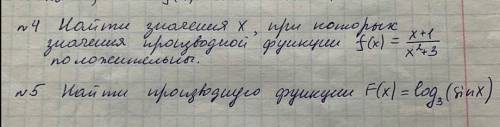 №4 Найти значения х, при которых
значения производной функции f(x) = x+1 / x²+3
положительны.
№5 Найти производную функции F(x) = log₃(sinx)